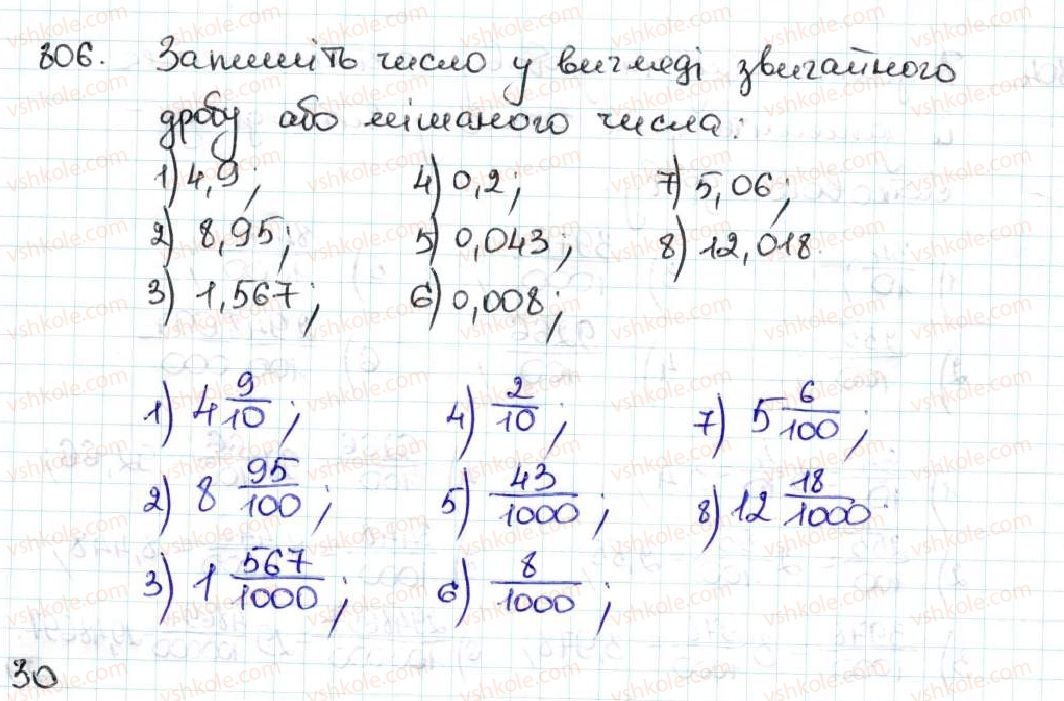 806. Запишіть число у вигляді звичайного
дробу або мішаного числа:
1) 4,9; 4) 0,2; 7) 5,06;
2) 8,95; 5) 0,043; 8) 12,018.
3) 1,567; 6) 0,008;
1) 4 9/10; 4) 2/10; 7) 5 6/100;
2) 8 95/100; 5) 43/1000; 8) 12 18/1000.
3) 1 567/1000; 6) 8/1000;
30